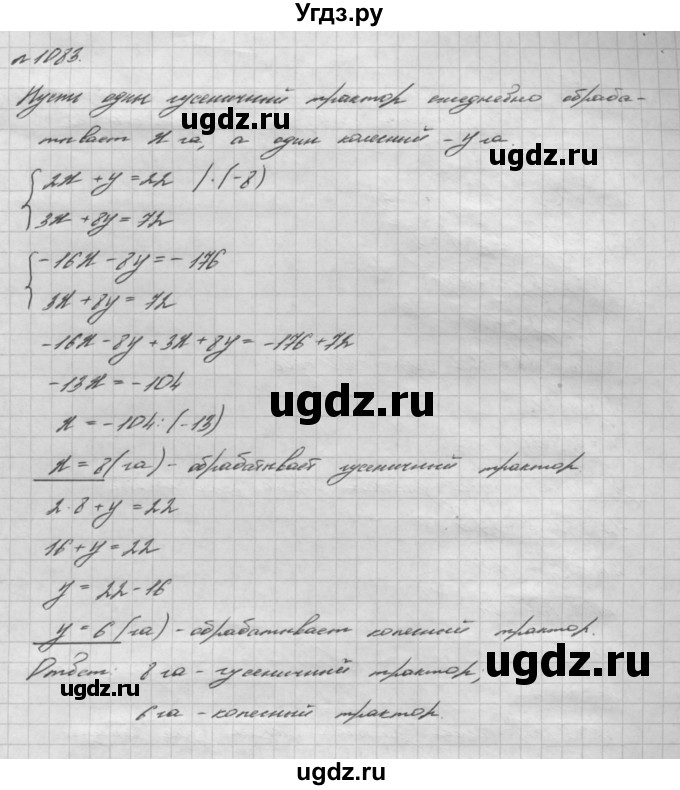 Угдз.ру
№1083.
Пусть один гусеничный трактор ежедневно обраба-
тывает x га, а один колесный - y га.
ugdz.ru
ugdz.ru
2x + y = 22 | · (-8)
3x + 8y = 72
-16x - 8y = -176
3x + 8y = 72
-16x - 8y + 3x + 8y = -176 + 72
-13x = -104
ugdz.ru
ugdz.ru
x = -104 : (-13)
x = 8 (га) - обрабатывает гусеничный трактор.
2 · 8 + y = 22
16 + y = 22
y = 22 - 16
y = 6 (га) - обрабатывает колесный трактор.
Ответ: 8 га - гусеничный трактор;
ugdz.ru
ugdz.ru
6 га - колесный трактор.
ugdz.ru